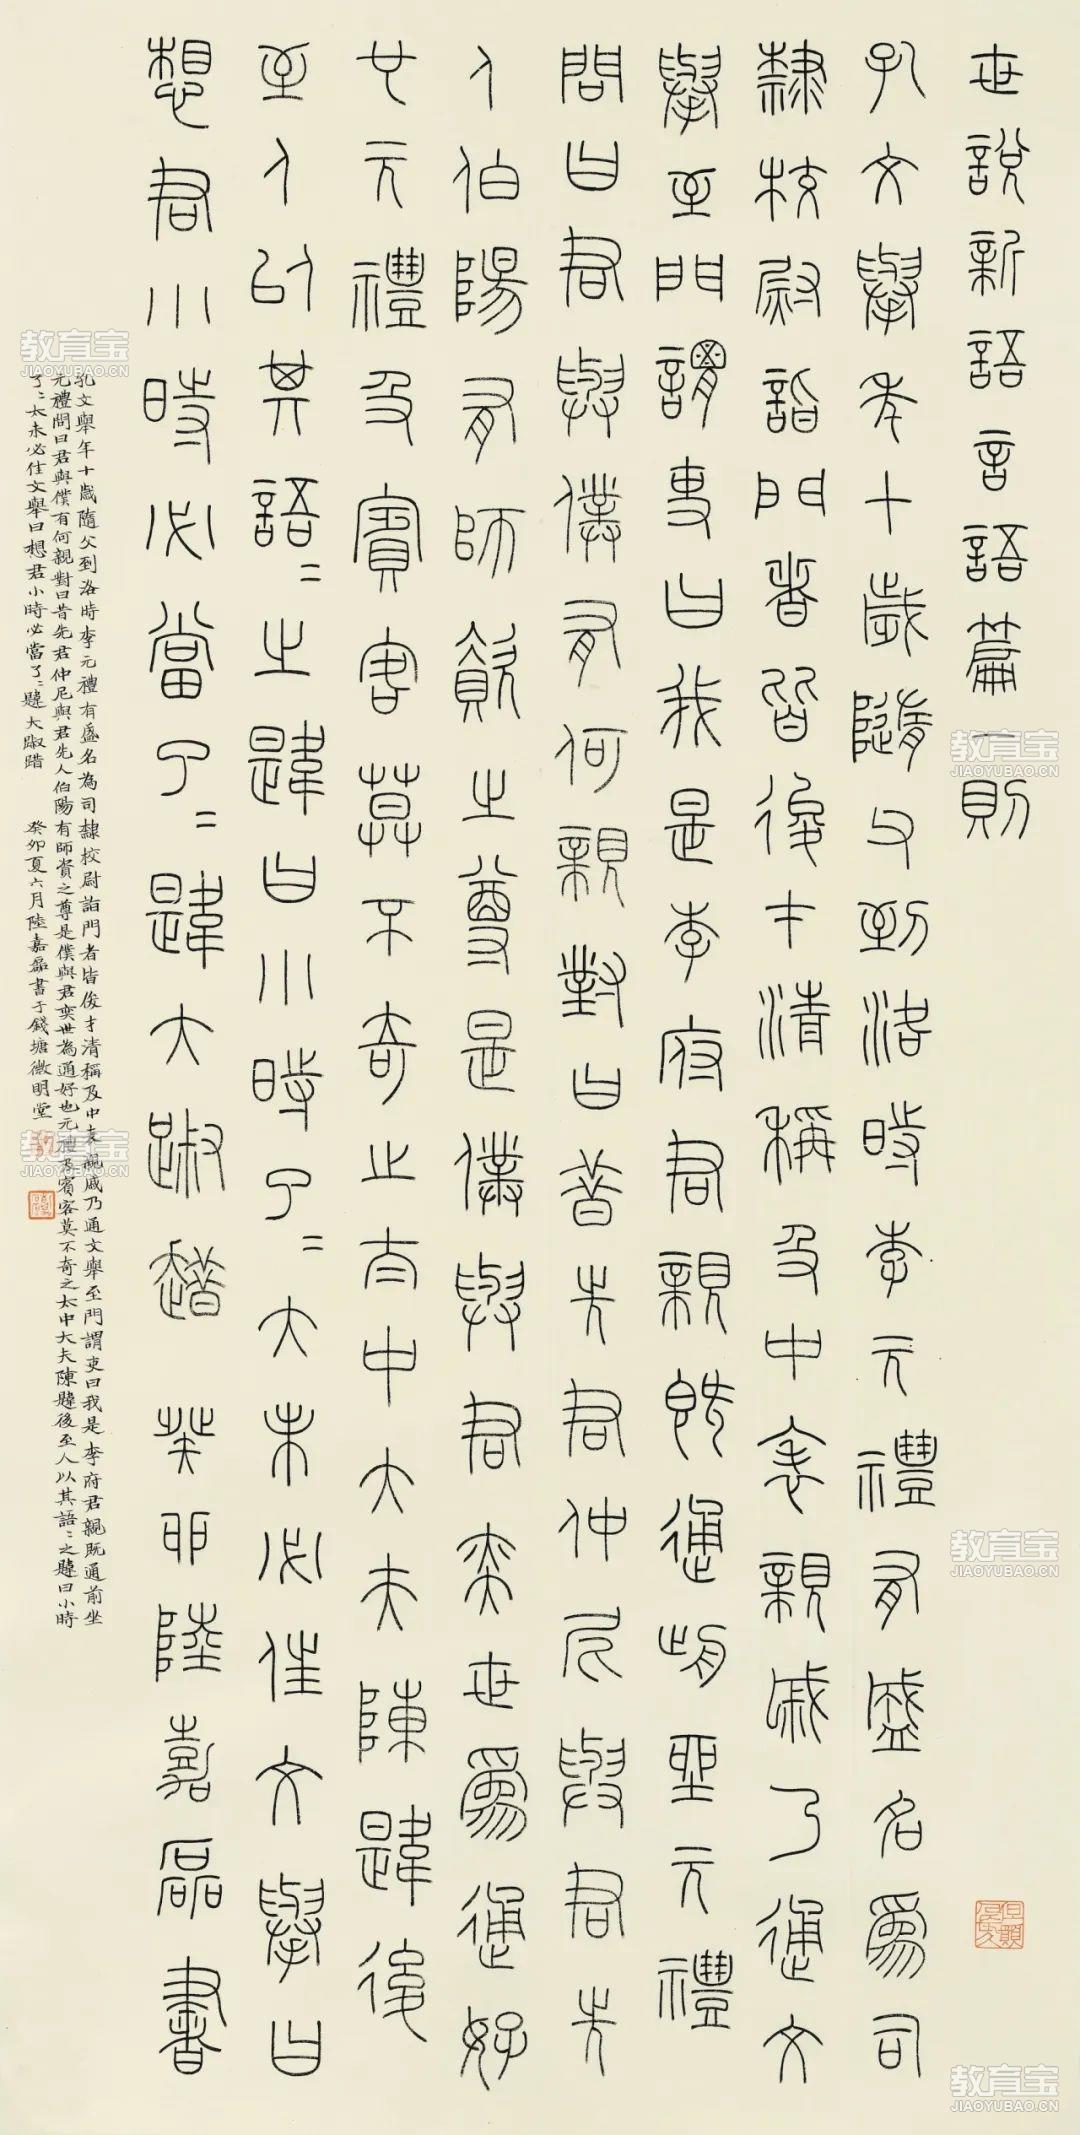 世說新語言語篇一則
孔文舉年十歲隨父到洛時李元禮有盛名為司
隸校尉詣門者皆俊才清稱及中表親戚乃通文
舉至門謂吏曰我是李府君親既通前坐元禮
問曰君與僕有何親對曰昔先君仲尼與君先
人伯陽有師資之尊是僕與君奕世為通好
也元禮及賓客莫不奇之太中大夫陳韙後
至人以其語〻之韙曰小時了〻大未必佳文舉曰
想君小時必當了〻韙大踧踖 癸卯陸嘉磊書
孔文舉年十歲隨父到洛時李元禮有盛名為司隸校尉詣門者皆俊才清稱及中表親戚乃通文舉至門謂吏曰我是李府君親既通前坐
元禮問曰君與僕有何親對曰昔先君仲尼與君先人伯陽有師資之尊是僕與君奕世為通好也元禮及賓客莫不奇之太中大夫陳韙後至人以其語〻之韙曰小時
了〻大未必佳文舉曰想君小時必當了〻韙大踧踖 癸卯夏六月陸嘉磊書于錢塘微明堂
教育宝
JIAOYUBAO.CN
教育宝
JIAOYUBAO.CN
教育宝
JIAOYUBAO.CN
教育宝
JIAOYUBAO.CN
教育宝
JIAOYUBAO.CN